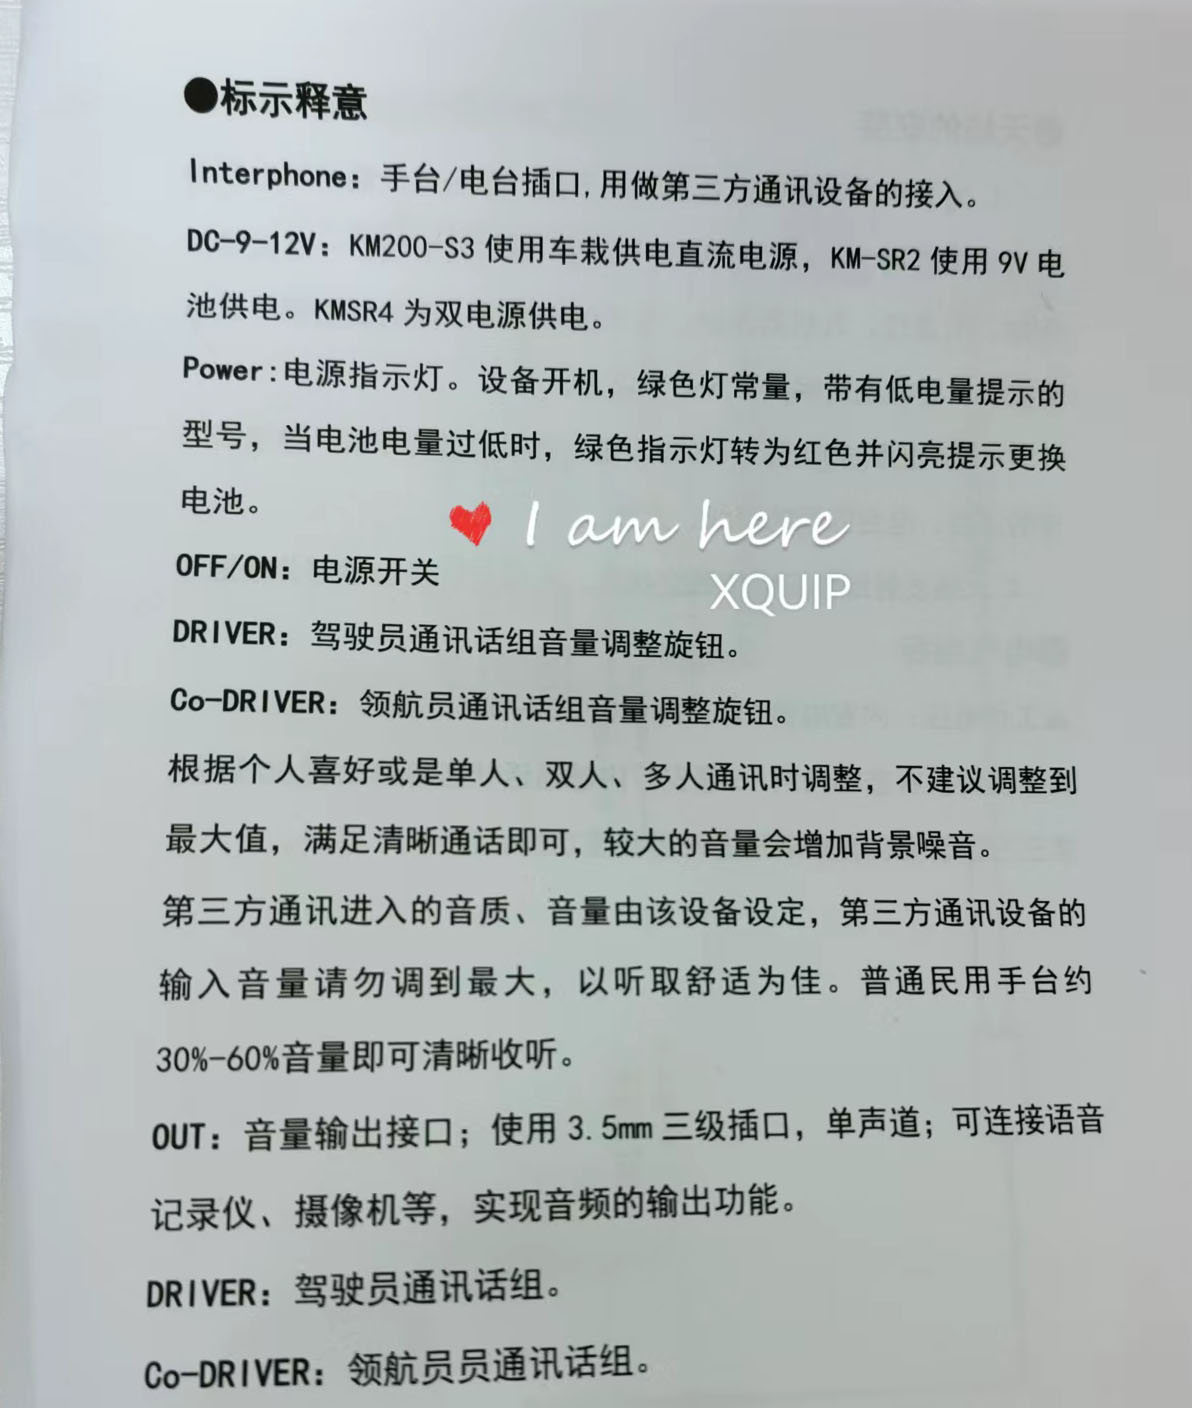 ●标示释意
Interphone：手台/电台插口,用做第三方通讯设备的接入。
DC-9-12V：KM200-S3 使用车栽供电直流电源，KM-SR2 使用 9V 电
池供电。KMSR4 为双电源供电。
Power:电源指示灯。设备开机，绿色灯常量，带有低电量提示的
型号，当电池电量过低时，绿色指示灯转为红色并闪亮提示更换
电池。
I am here
XQUIP
OFF/ON：电源开关
DRIVER：驾驶员通讯话组音量调整旋钮。
Co-DRIVER：领航员通讯话组音量调整旋钮。
根据个人喜好或是单人、双人、多人通讯时调整，不建议调整到
最大值，满足清晰通话即可，较大的音量会增加背景噪音。
第三方通讯进入的音质、音量由该设备设定，第三方通讯设备的
输入音量请勿调到最大，以听取舒适为佳。普通民用手台约
30%-60%音量即可清晰收听。
OUT：音量输出接口；使用 3.5mm 三级插口，单声道；可连接语音
记录仪、摄像机等，实现音频的输出功能。
DRIVER：驾驶员通讯话组。
Co-DRIVER：领航员员通讯话组。